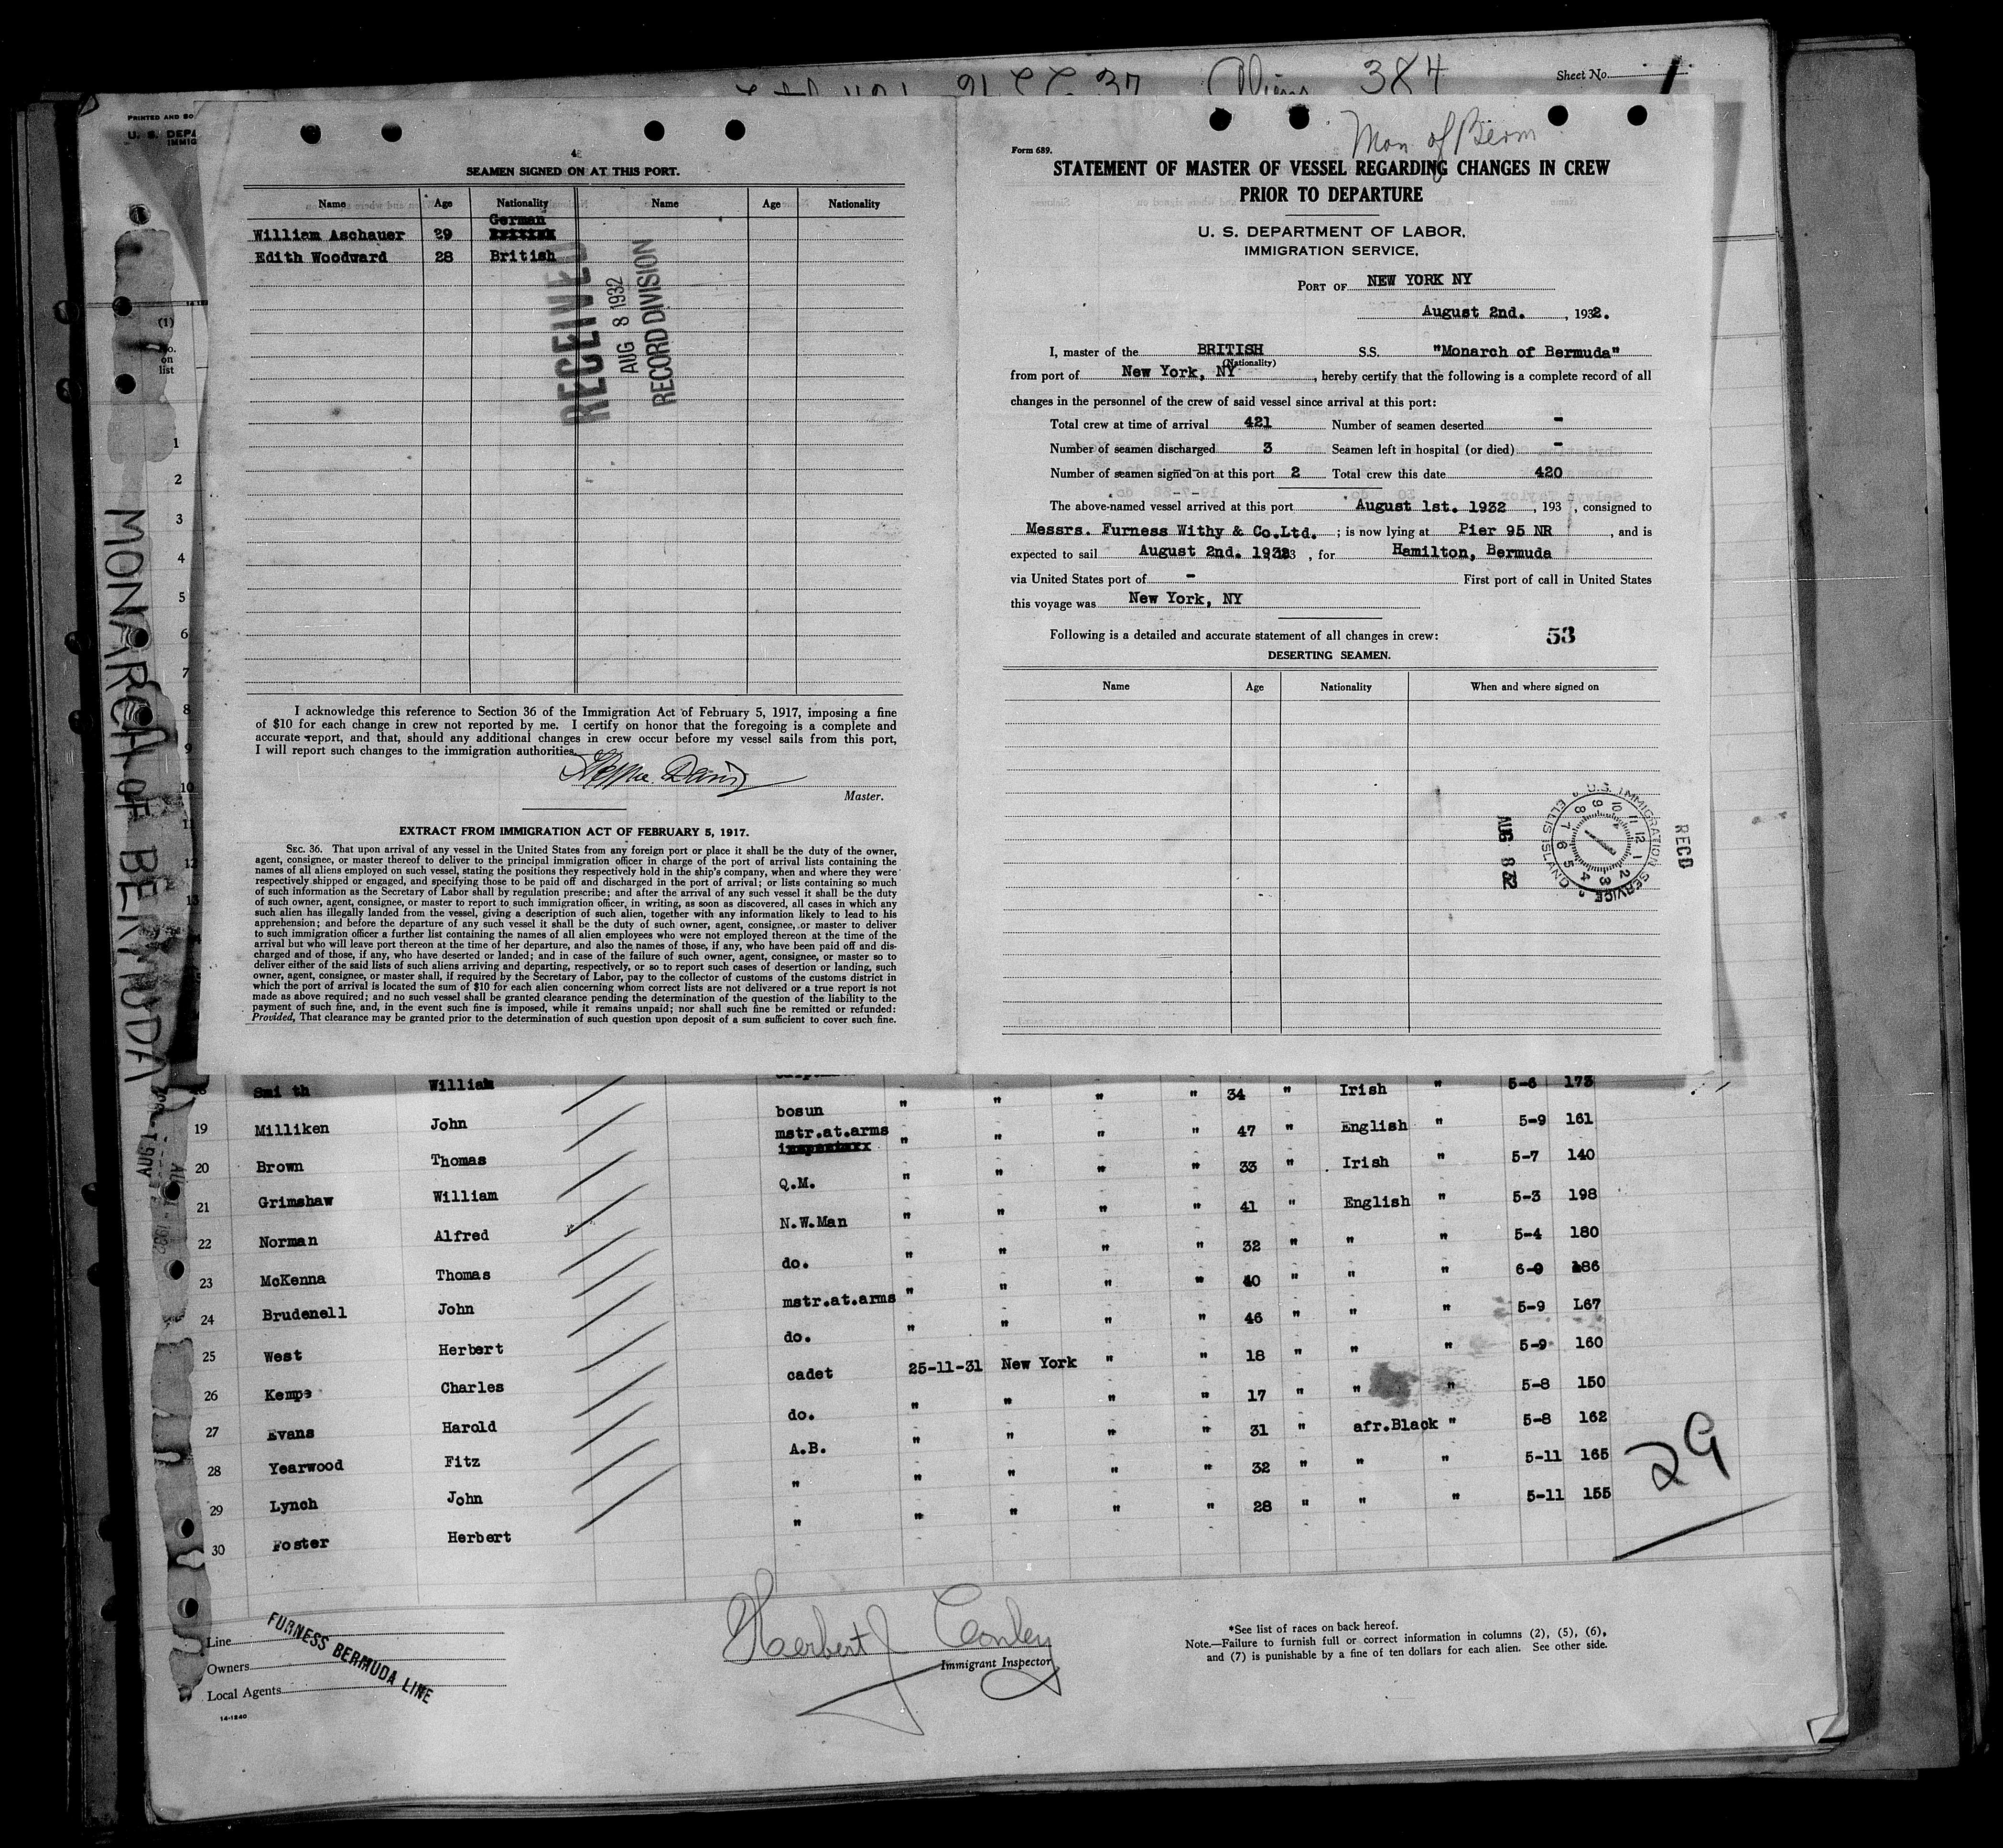 384
Sheet No. 1
PRINTED AND SO
U. S. DEPA
IMMIG
(1)
No.
on
list
1
2
3
4
5
6
7
8
9
10
11
12
13
MONARCH OF BERMUDA
4
SEAMEN SIGNED ON AT THIS PORT.
Name Age Nationality Name Age Nationality
German
William Aschauer 29 British
Edith Woodward 28 British
RECEIVED
AUG 8 1932
RECORD DIVISION
I acknowledge this reference to Section 36 of the Immigration Act of February 5, 1917, imposing a fine
of $10 for each change in crew not reported by me. I certify on honor that the foregoing is a complete and
accurate report, and that, should any additional changes in crew occur before my vessel sails from this port,
I will report such changes to the immigration authorities.
Davis
Master.
EXTRACT FROM IMMIGRATION ACT OF FEBRUARY 5, 1917.
SEC. 36. That upon arrival of any vessel in the United States from any foreign port or place it shall be the duty of the owner,
agent, consignee, or master thereof to deliver to the principal immigration officer in charge of the port of arrival lists containing the
names of all aliens employed on such vessel, stating the positions they respectively hold in the ship's company, when and where they were
respectively shipped or engaged, and specifying those to be paid off and discharged in the port of arrival; or lists containing so much
of such information as the Secretary of Labor shall by regulation prescribe; and after the arrival of any such vessel it shall be the duty
of such owner, agent, consignee, or master to report to such immigration officer, in writing, as soon as discovered, all cases in which any
such alien has illegally landed from the vessel, giving a description of such alien, together with any information likely to lead to his
apprehension; and before the departure of any such vessel it shall be the duty of such owner, agent, consignee, or master to deliver
to such immigration officer a further list containing the names of all alien employees who were not employed thereon at the time of the
arrival but who will leave port thereon at the time of her departure, and also the names of those, if any, who have been paid off and dis-
charged and of those, if any, who have deserted or landed; and in case of the failure of such owner, agent, consignee, or master so to
deliver either of the said lists of such aliens arriving and departing, respectively, or so to report such cases of desertion or landing, such
owner, agent, consignee, or master shall, if required by the Secretary of Labor, pay to the collector of customs of the customs district in
which the port of arrival is located the sum of $10 for each alien concerning whom correct lists are not delivered or a true report is not
made as above required; and no such vessel shall be granted clearance pending the determination of the question of the liability to the
payment of such fine, and, in the event such fine is imposed, while it remains unpaid; nor shall such fine be remitted or refunded:
Provided, That clearance may be granted prior to the determination of such question upon deposit of a sum sufficient to cover such fine.
Mon of Berm
Form 689.
STATEMENT OF MASTER OF VESSEL REGARDING CHANGES IN CREW
PRIOR TO DEPARTURE
U. S. DEPARTMENT OF LABOR,
IMMIGRATION SERVICE,
PORT OF NEW YORK NY
August 2nd. , 1932.
I, master of the BRITISH S.S. "Monarch of Bermuda"
(Nationality)
from port of New York, NY , hereby certify that the following is a complete record of all
changes in the personnel of the crew of said vessel since arrival at this port:
Total crew at time of arrival 421 Number of seamen deserted -
Number of seamen discharged 3 Seamen left in hospital (or died) -
Number of seamen signed on at this port 2 Total crew this date 420
The above-named vessel arrived at this port August 1st. 1932 , 193 , consigned to
Messrs. Furness Withy & Co.Ltd. ; is now lying at Pier 95 NR , and is
expected to sail August 2nd. 1932 , 193 , for Hamilton, Bermuda
via United States port of - First port of call in United States
this voyage was New York, NY
Following is a detailed and accurate statement of all changes in crew: 53
DESERTING SEAMEN.
Name Age Nationality When and where signed on
RECD
U.S. IMMIGRATION SERVICE
ELLIS ISLAND
AUG 8 32
Smith William 34 " Irish " 5-6 173
19 Milliken John bosun " " " " 47 " English " 5-9 161
20 Brown Thomas mstr.at.arms " " " " 33 " Irish " 5-7 140
21 Grimshaw William Q.M. " " " " 41 " English " 5-3 198
22 Norman Alfred N.W.Man " " " " 32 " " " 5-4 180
23 McKenna Thomas do. " " " " 40 " " " 6-0 186
24 Brudenell John mstr.at.arms " " " " 46 " " " 5-9 L67
25 West Herbert do. " " " " 18 " " " 5-9 160
26 Kempe Charles cadet 25-11-31 New York " " 17 " " " 5-8 150
27 Evans Harold do. " " " " 31 " afr.Black " 5-8 162
28 Yearwood Fitz A.B. " " " " 32 " " " 5-11 165
29 Lynch John " " " " " 28 " " " 5-11 155
30 Foster Herbert " " "
29
Line
Owners
Local Agents
FURNESS BERMUDA LINE
14-1240
Herbert J Conley
Immigrant Inspector
*See list of races on back hereof.
Note.—Failure to furnish full or correct information in columns (2), (5), (6),
and (7) is punishable by a fine of ten dollars for each alien. See other side.